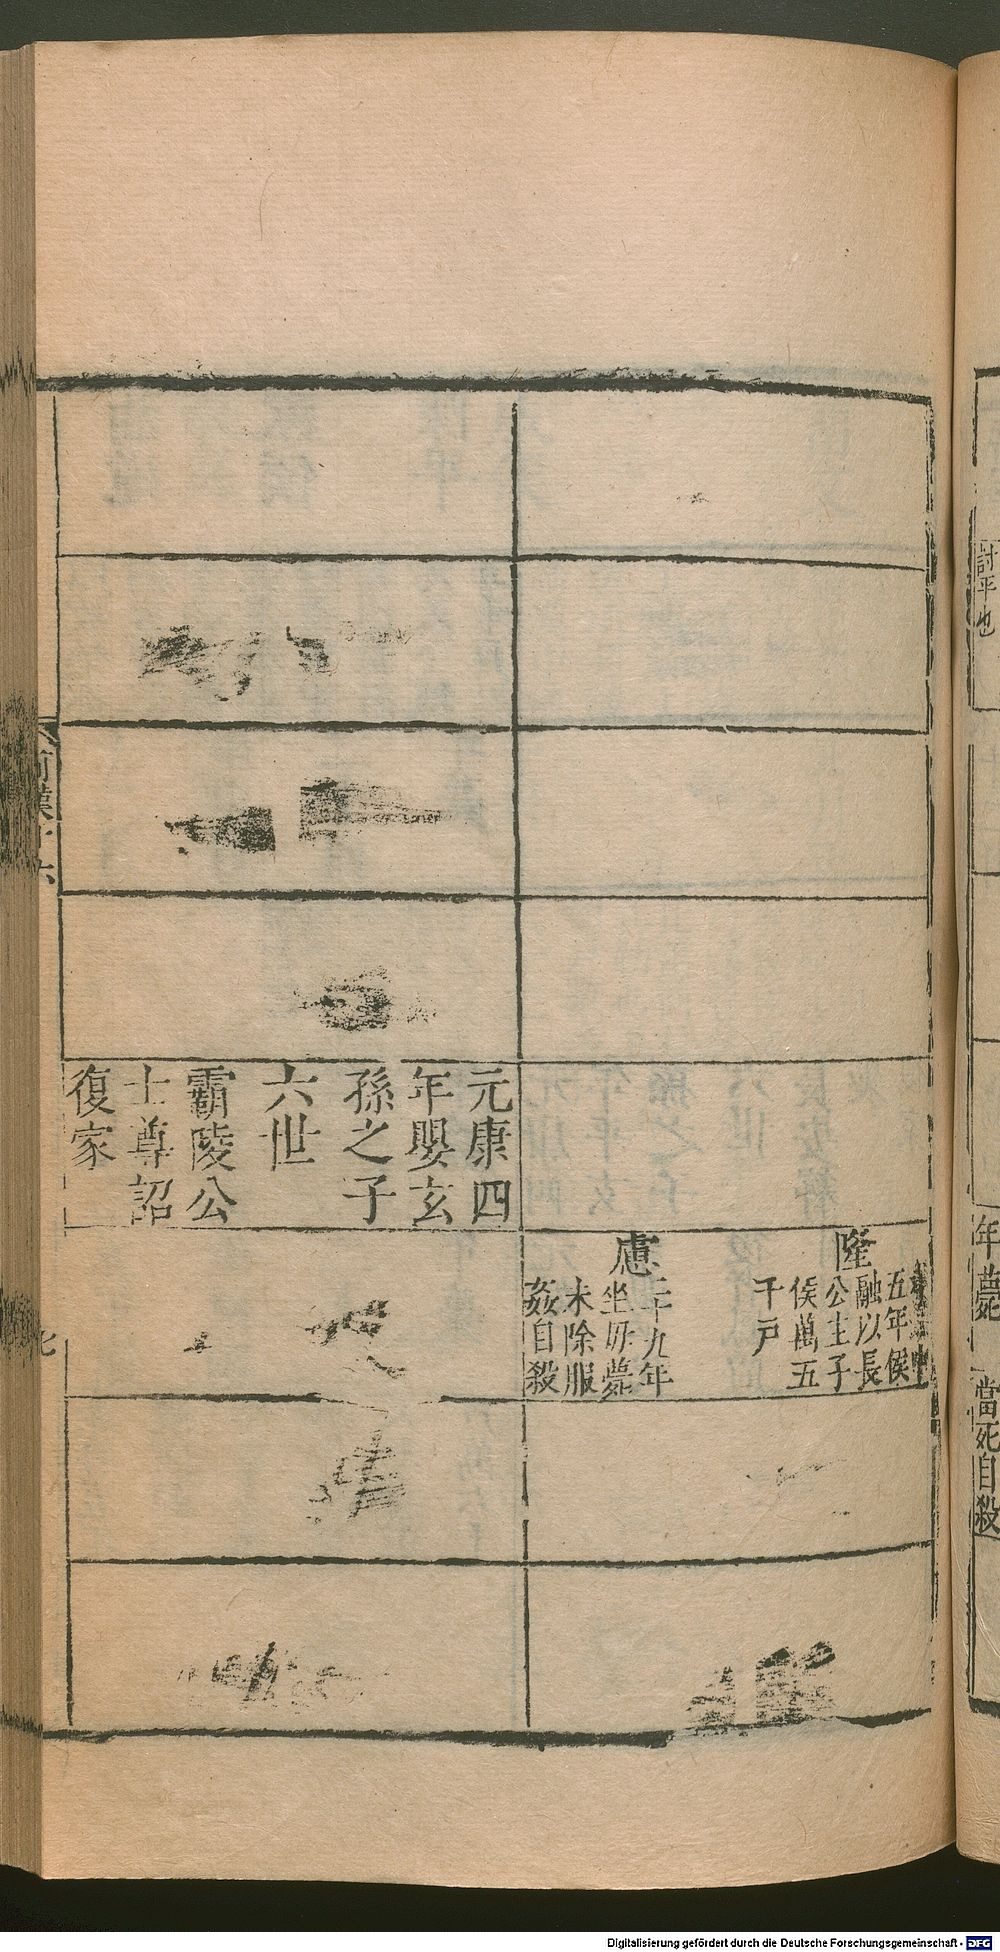 討平也
年薨
當死自殺
隆
五年侯
融以長
公主子
侯萬五
千戶
慮
二十九年
坐毋薨
未除服
姦自殺
元康四
年嬰玄
孫之子
六世
霸陵公
士尊詔
復家
前漢十六
七
Digitalisierung gefördert durch die Deutsche Forschungsgemeinschaft - DFG